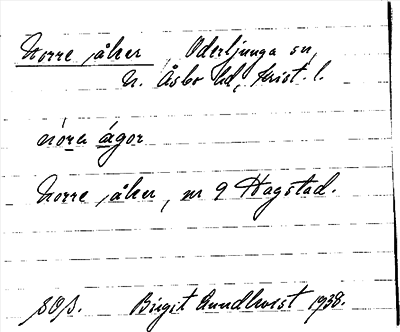 Norre åker, Oderljunga sn,
N. Åsbo hd, Krist. l.
nóra ágor
Norre åker, nr 9 Hagstad.
Birgit Lundkvist 1938.